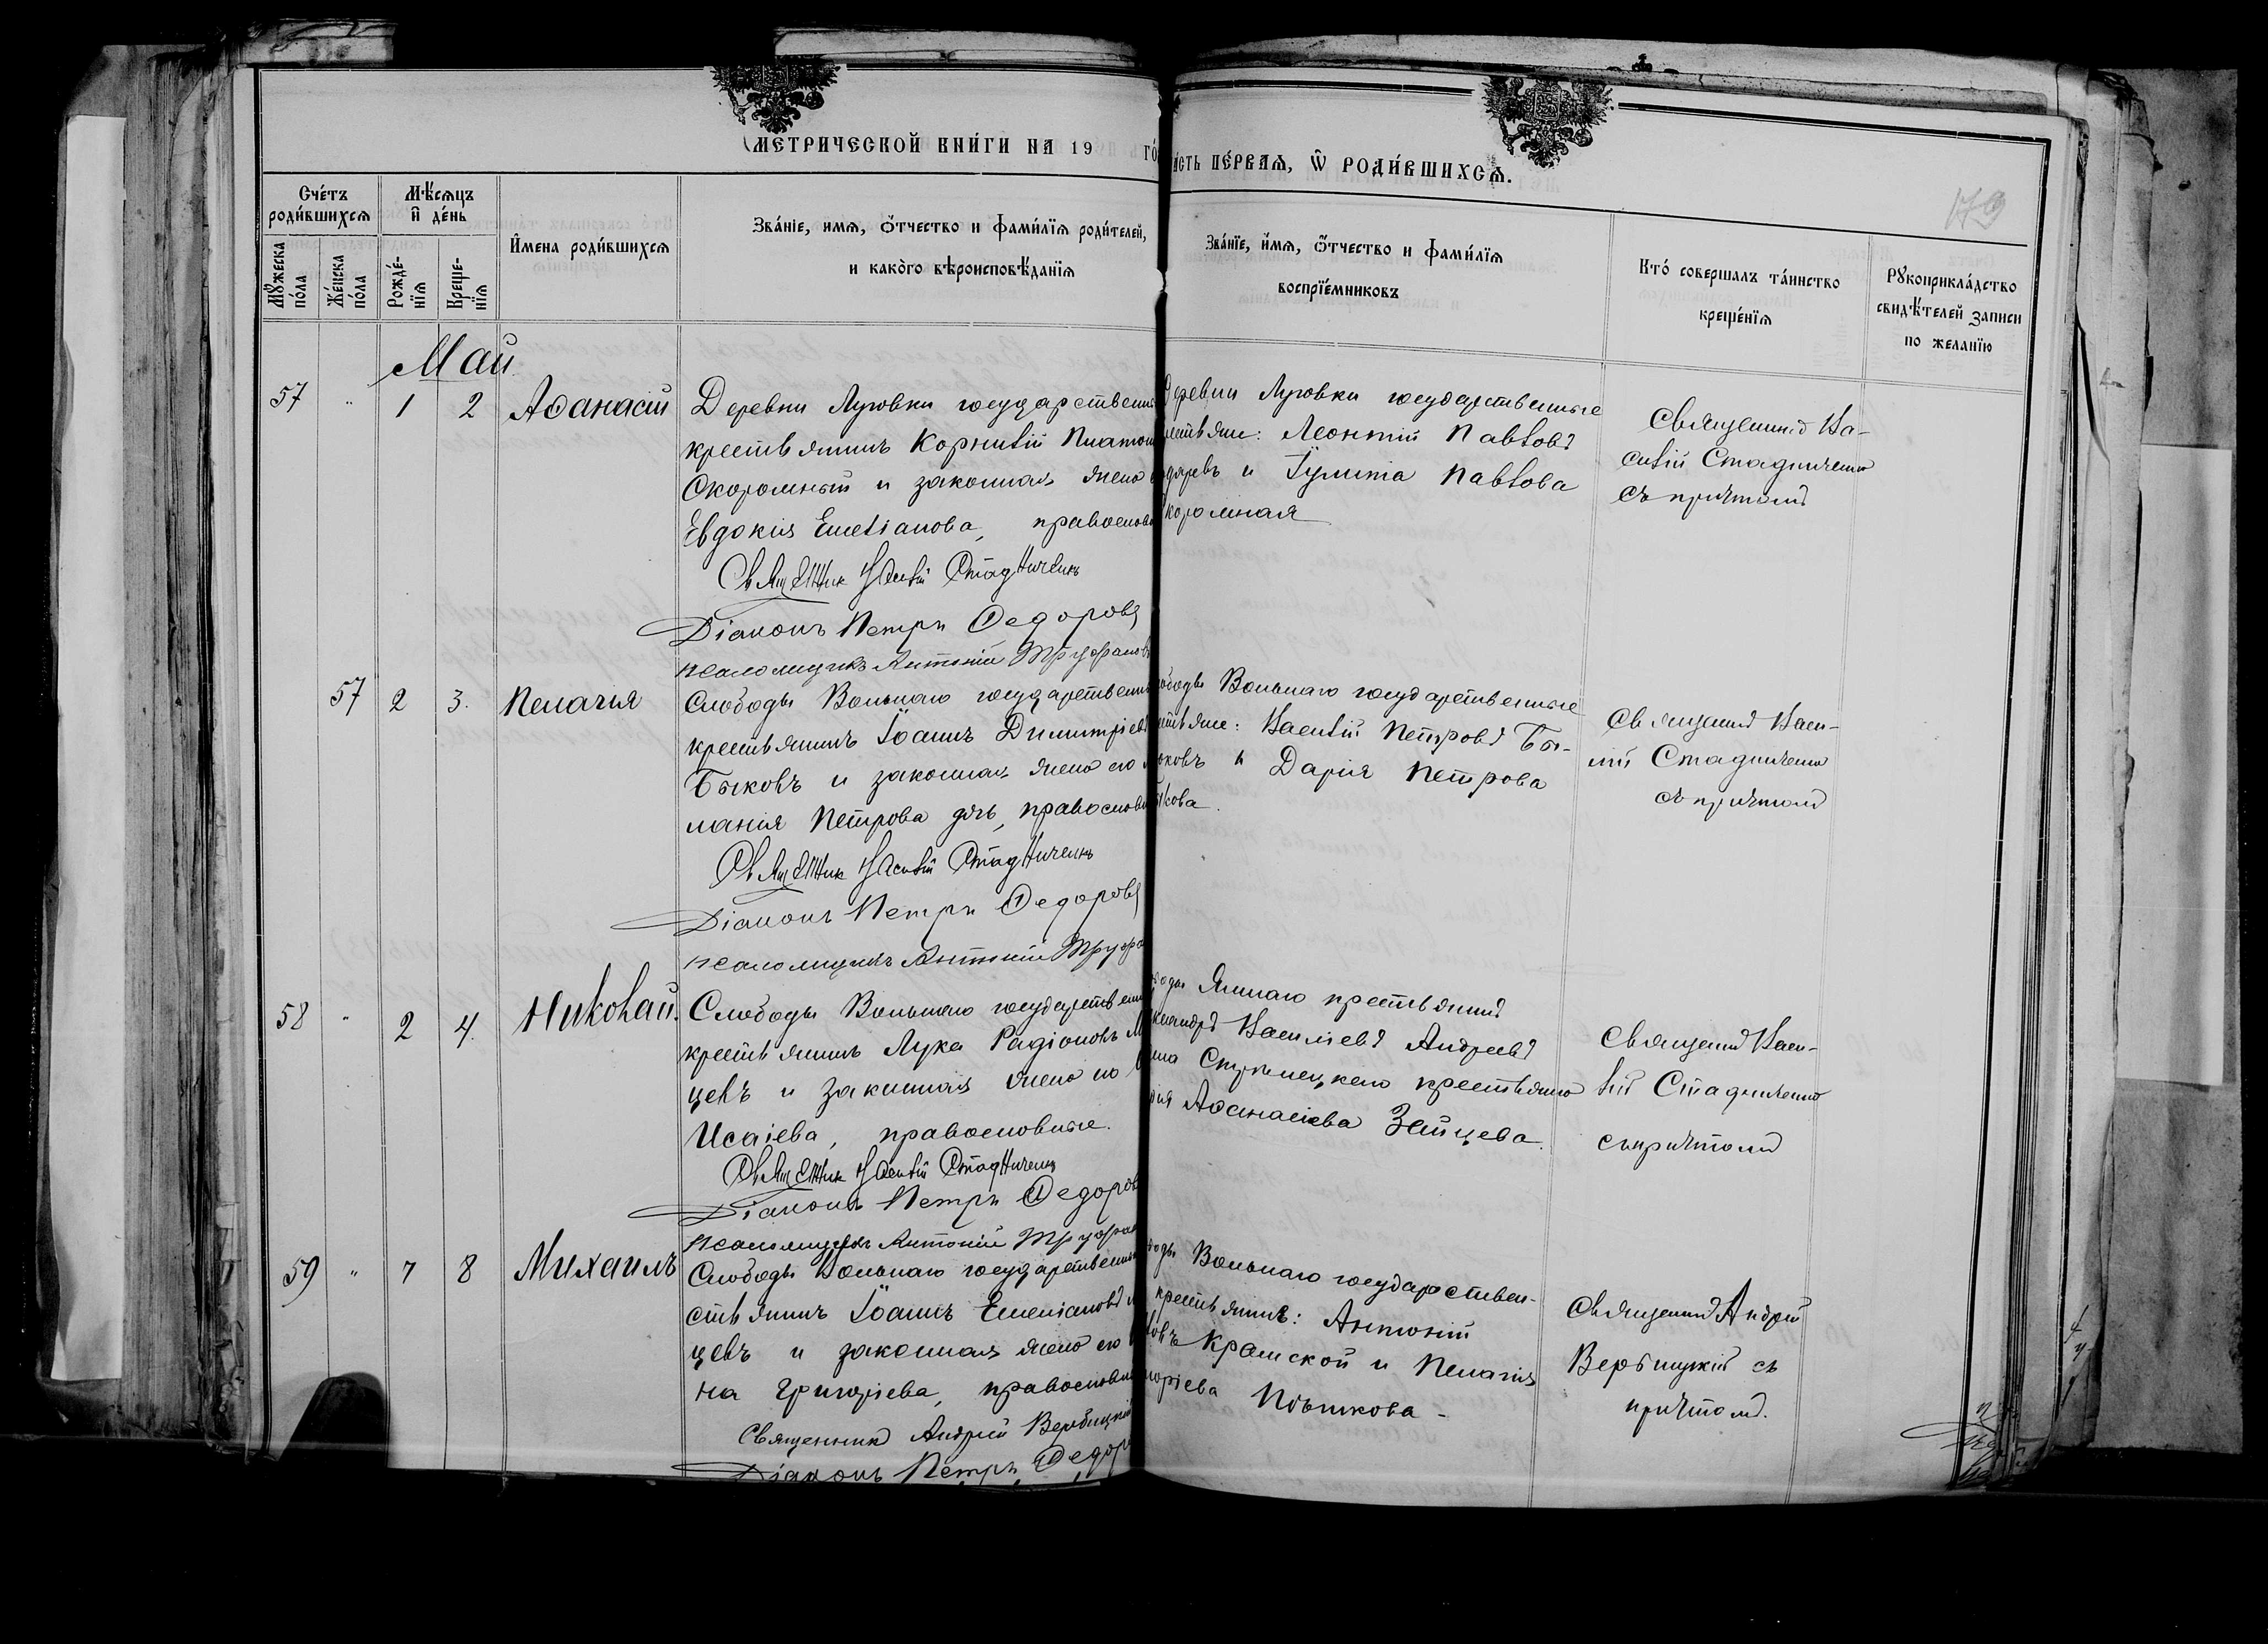 МЕТРИЧЕСКОЙ КНИ́ГИ НА 19 ГО́
СТЬ ПЕ́РВАѦ, Ѿ РОДИ́ВШИХСѦ.
179
Сче́тъ роди́вшихсѧ
Мꙋ́жеска по́ла
Же́нска по́ла
Мѣ́сѧцъ и҆ де́нь
Рожде́-нїѧ
Креще-нїѧ
И҆мена роди́вшихсѧ
Зва́нїе, имѧ, ѻ҆́тчество и фами́лїѧ роди́телей,
и како̀го вѣроисповѣ́данїѧ
Зва́нїе, и҆́мѧ, ѻ҆́тчество и фами́лїѧ
воспрїе́мниковъ
Кто́ совершалъ та́инство
креще́нїѧ
Рꙋкоприкла́дство
свидѣ́телей записи
по желанїю
Май
57 " 1 2 Аѳанасій
Деревни Луговки государственн
крестьянинъ Корнилій Платон
Скоромный и законная жена
Евдокія Емеліанова, православ
Священник Василій Стадниченк
Діаконъ Петръ Ѳедоровъ
псаломщикъ Антоній Труфанов
Деревни Луговки государственные
рестьяне: Леонтій Павловъ
и Іулитта Павлова
коромная
Священникъ Ва-
силій Стадниченко
съ причтомъ
57 2 3. Пелагія
Слободы Вольнаго государственн
крестьянинъ Іоаннъ Димитріев
Быковъ и законная жена его
ланія Петрова дчь, православ
Священник Василій Стадниченкъ
Діаконъ Петръ Ѳедоровъ
псаломщикъ Антоній Труфа
ободы Вольнаго государственные
стьяне: Василій Петровъ Бы-
ковъ и Дарія Петрова
кова.
Священникъ Васи-
лій Стадниченко
съ причтомъ
58 " 2 4. Николай.
Слободы Вольнаго государственн
крестьянинъ Лука Радіоновъ
цевъ и законная жена его
Исаіева, православные.
Священник Василій Стадниченк
Діаконъ Петръ Ѳедоров
псаломщикъ Антоній Труфан
оды Ямнаго крестьянинъ
ксандръ Васильевъ Андреевъ
крестьянка
Аѳанасіева Зайцева.
Священникъ Васи-
лій Стадниченко
съ причтомъ
59 " 7 8 Михаилъ
Слободы Вольнаго государственн
стьянинъ Іоаннъ Емеліановъ
цевъ и законная жена его
на Григоріева, православн
Священникъ Андрей Вербицкій
Діаконъ Петръ Ѳедоро
оды Вольнаго государствен-
крестьянинъ: Антоній
Крамской и Пелагія
горіева
Священникъ Андрей
Вербицкій съ
причтомъ.